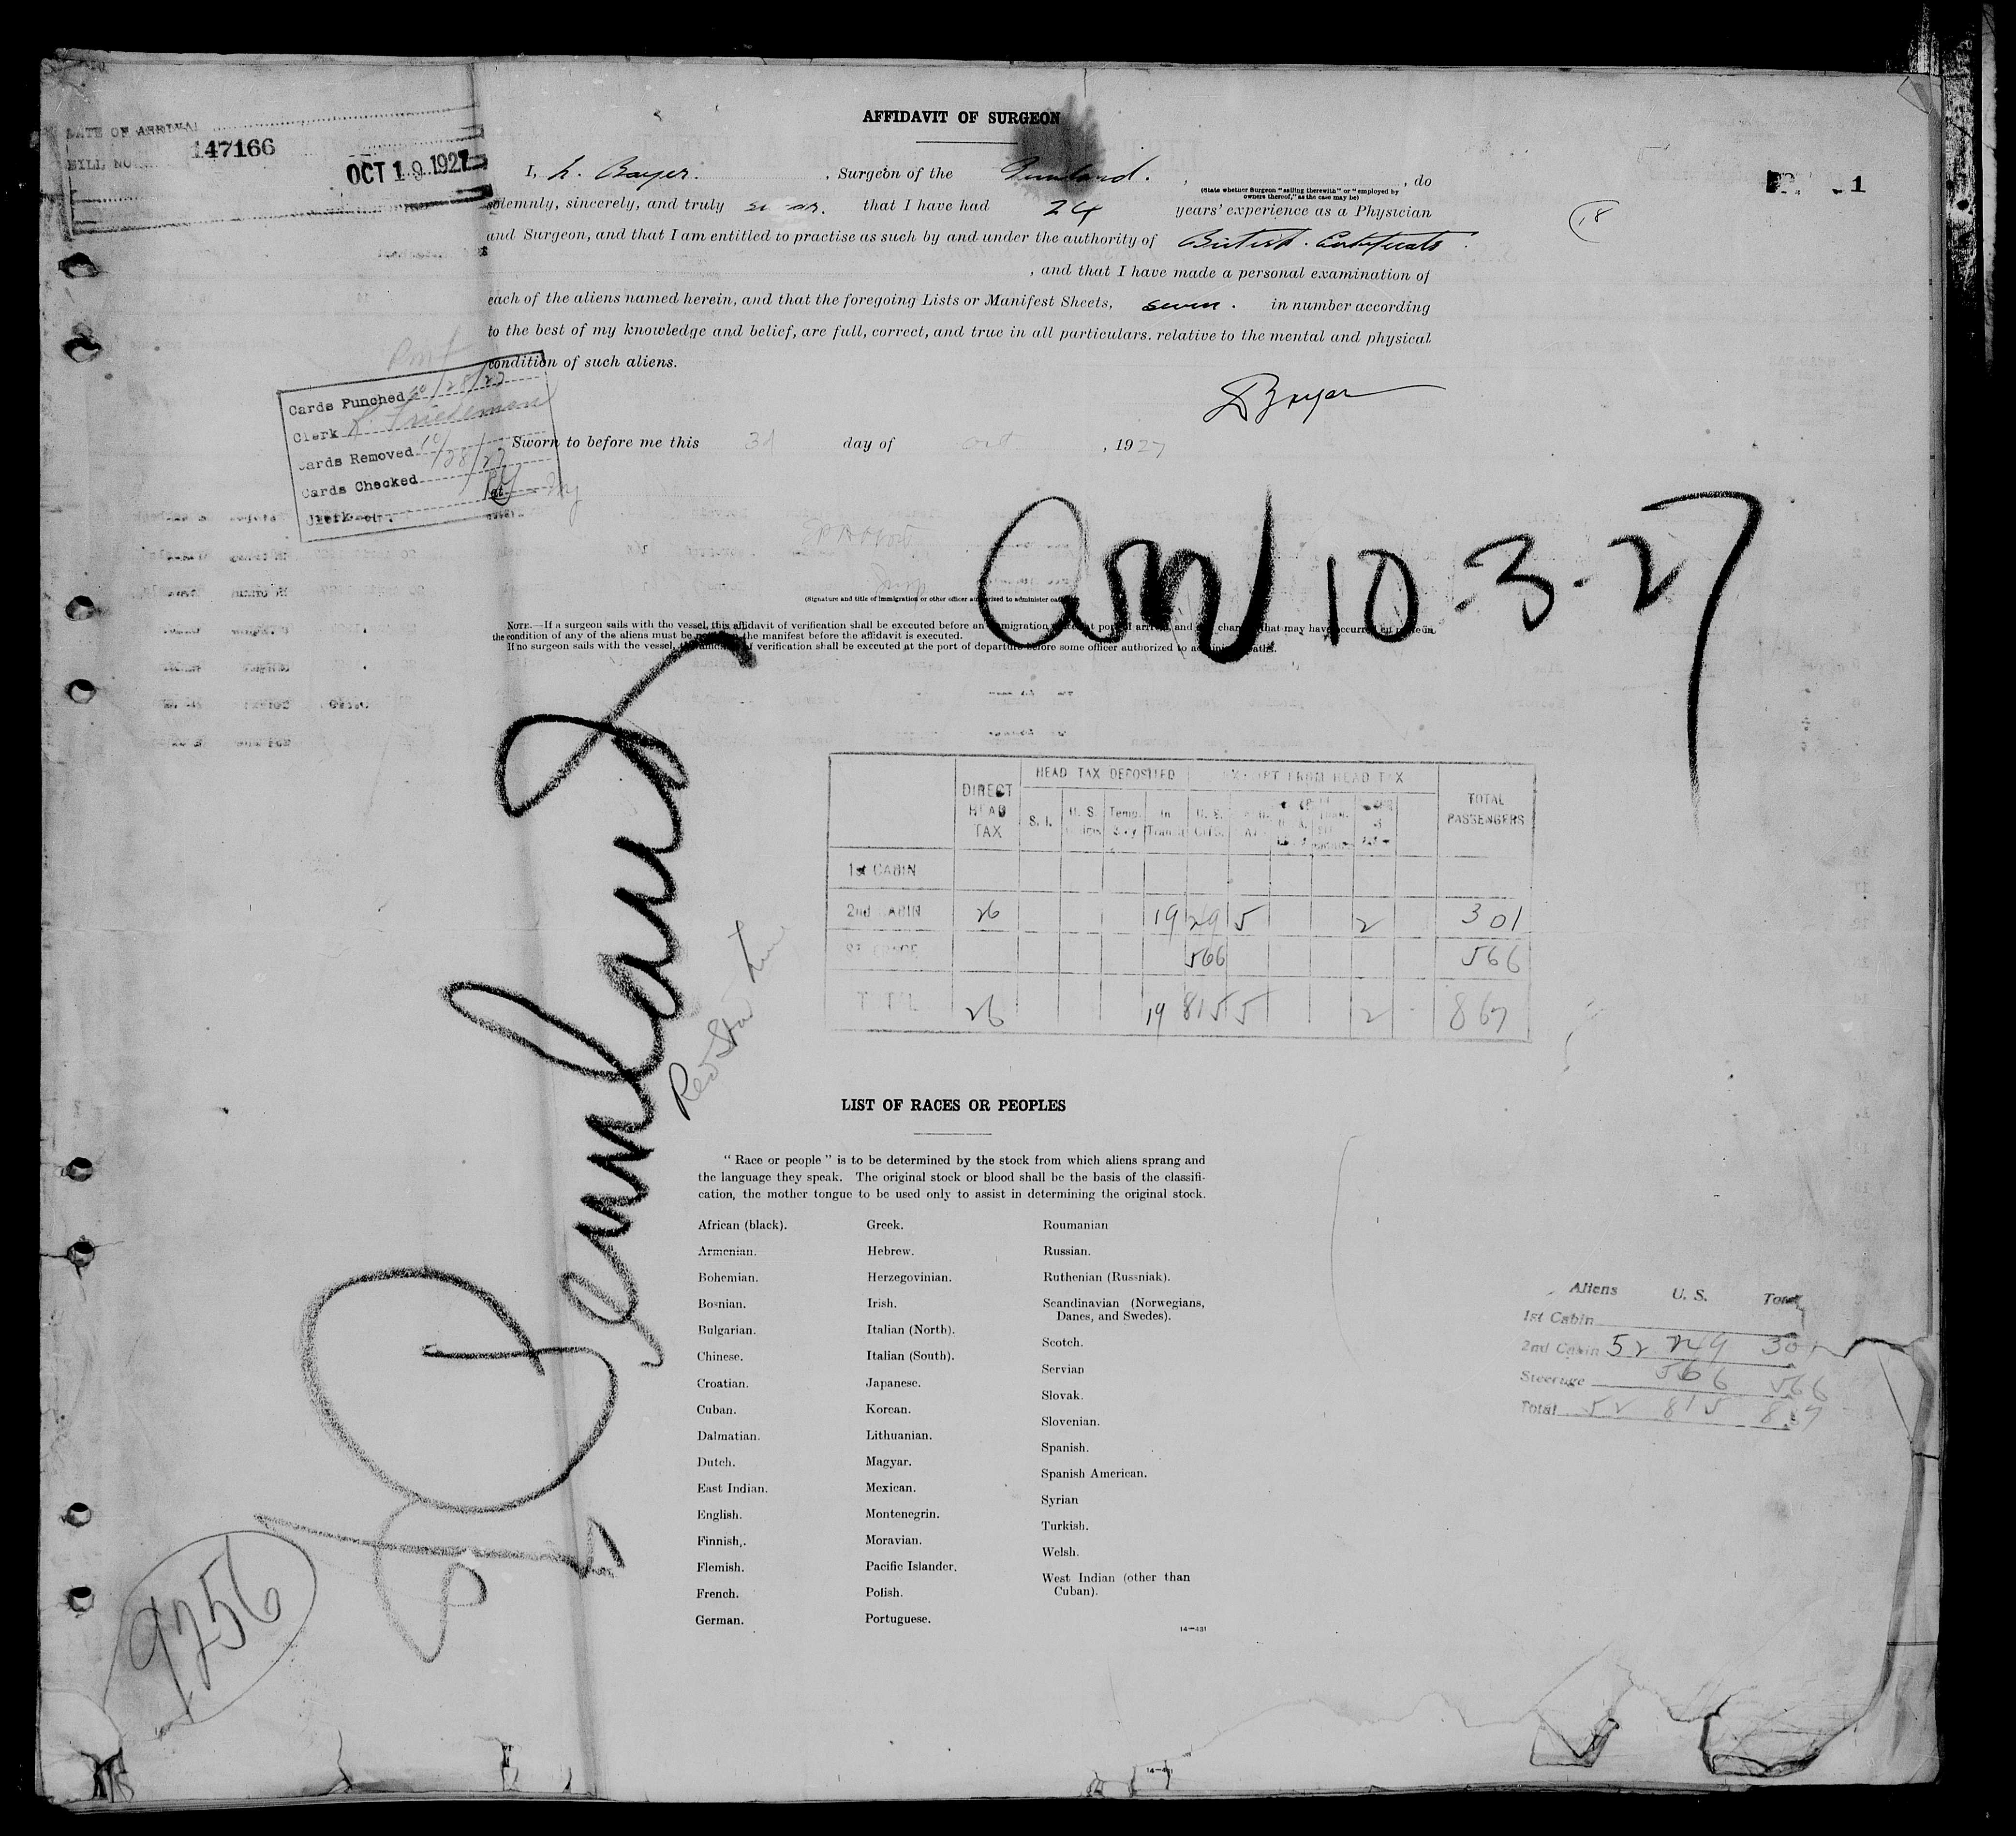 DATE OF ARRIVAL
BILL NO. 147166
OCT 19 1927
1
18
AFFIDAVIT OF SURGEON
I, L. Bayer. , Surgeon of the Pennland. , , do
(State whether Surgeon "sailing therewith" or "employed by
owners thereof," as the case may be)
solemnly, sincerely, and truly swear. that I have had 24 years' experience as a Physician
and Surgeon, and that I am entitled to practise as such by and under the authority of British. Certificate.
, and that I have made a personal examination of
each of the aliens named herein, and that the foregoing Lists or Manifest Sheets, seven. in number according
to the best of my knowledge and belief, are full, correct, and true in all particulars. relative to the mental and physical
condition of such aliens.
LBayer
Cards Punched 10/28/27
Clerk
Cards Removed 10/28/27
Cards Checked
Clerk
Sworn to before me this 3d day of Oct , 1927
(Signature and title of immigration or other officer authorized to administer oaths)
10-3-27
NOTE.—If a surgeon sails with the vessel, this affidavit of verification shall be executed before an immigration at port of arrival and change that may have occurred en route in
the condition of any of the aliens must be the manifest before the affidavit is executed.
If no surgeon sails with the vessel, the affidavit of verification shall be executed at the port of departure before some officer authorized to administer oaths.
Pennland
Red Star Line
DIRECT HEAD TAX HEAD TAX DEPOSITED EXEMPT FROM HEAD TAX TOTAL PASSENGERS
S. I. U. S. Temp. In Transit U. S.
1st CABIN
2nd CABIN 26 19 249 5 2 301
STEERAGE 566 566
TOTAL 26 19 815 5 2 867
LIST OF RACES OR PEOPLES
" Race or people " is to be determined by the stock from which aliens sprang and
the language they speak. The original stock or blood shall be the basis of the classifi-
cation, the mother tongue to be used only to assist in determining the original stock.
African (black).
Armenian.
Bohemian.
Bosnian.
Bulgarian.
Chinese.
Croatian.
Cuban.
Dalmatian.
Dutch.
East Indian.
English.
Finnish,.
Flemish.
French.
German.
Greek.
Hebrew.
Herzegovinian.
Irish.
Italian (North).
Italian (South).
Japanese.
Korean.
Lithuanian.
Magyar.
Mexican.
Montenegrin.
Moravian.
Pacific Islander.
Polish.
Portuguese.
Roumanian
Russian.
Ruthenian (Russniak).
Scandinavian (Norwegians,
Danes, and Swedes).
Scotch.
Servian
Slovak.
Slovenian.
Spanish.
Spanish American.
Syrian
Turkish.
Welsh.
West Indian (other than
Cuban).
14—431
Aliens U. S. Total
1st Cabin
2nd Cabin 52 249 301
Steerage 566 566
Total 52 815 867
9256
14—431